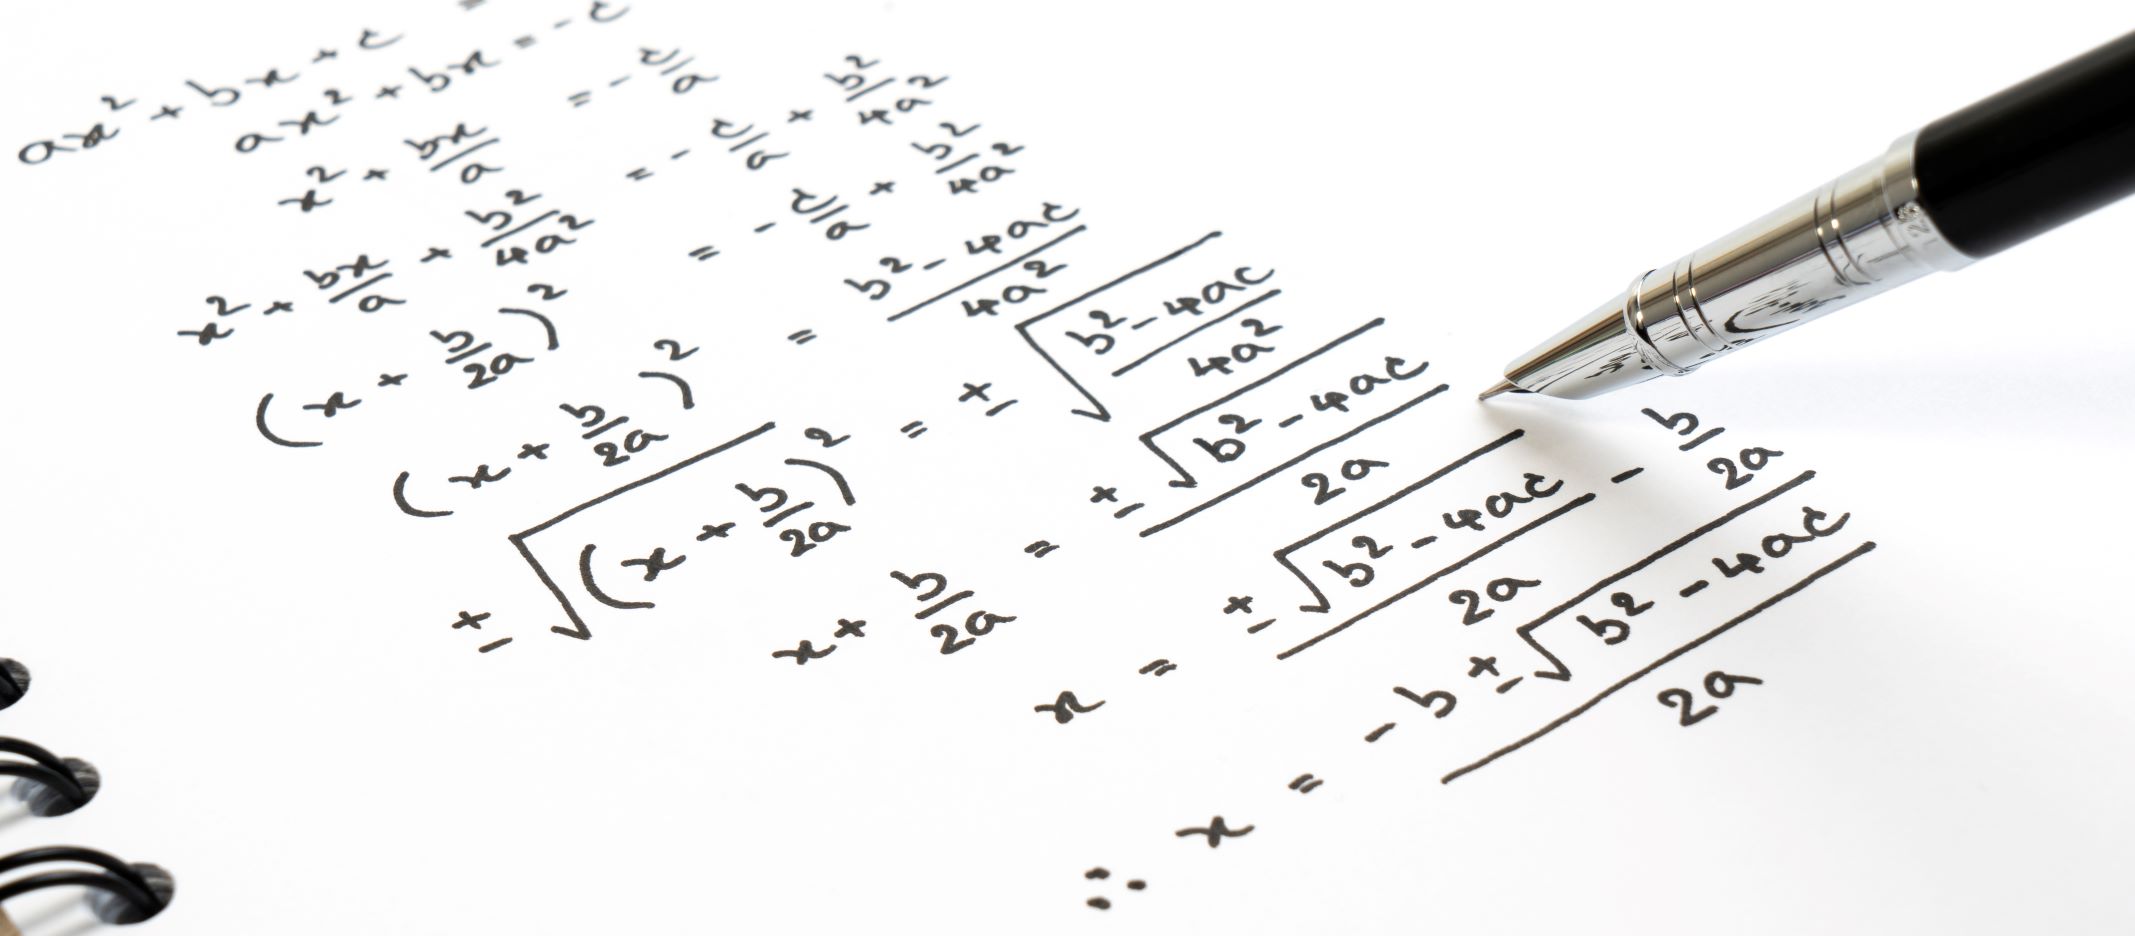 ax² + bx + c =
ax² + bx = -c
x² + bx/a = -c/a
x² + bx/a + b²/4a² = -c/a + b²/4a²
(x + b/2a)² = -c/a + b²/4a²
(x + b/2a)² = (b² - 4ac)/4a²
±√(x + b/2a)² = ±√((b² - 4ac)/4a²)
x + b/2a = ±√(b² - 4ac)/2a
x = ±√(b² - 4ac)/2a - b/2a
∴ x = (-b ± √(b² - 4ac))/2a